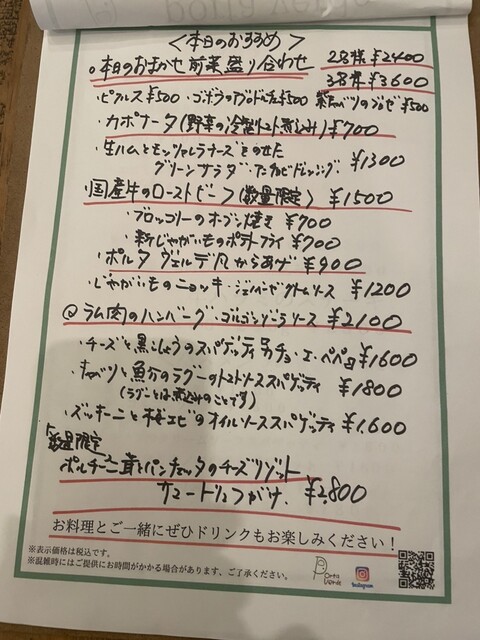 <本日のおすすめ>
。本日のおまかせ前菜盛り合わせ 2名様 ¥2400
3名様 ¥3600
・ピクルス ¥500 ・ゴボウの ¥500 ¥500
・カポナータ(野菜の冷製トマト煮込み) ¥700
・生ハムとモッツァレラチーズをのせた
グリーンサラダ ドレッシング ¥1300
・国産牛のローストビーフ(数量限定) ¥1500
・ブロッコリーのオーブン焼き ¥700
・新じゃがいものポテトフライ ¥700
・ポルタ ヴェルデ風からあげ ¥900
・じゃがいものニョッキ・ジェノベーゼクリームソース ¥1200
◎ラム肉のハンバーグ・ゴルゴンゾーラソース ¥2100
・チーズと黒こしょうのスパゲッティ カチョ・エ・ペペ ¥1600
・キャベツと魚介のラグーのトマトソーススパゲッティ ¥1800
(ラグーとは煮込みのことです)
・ズッキーニと桜エビのオイルソーススパゲッティ ¥1,600
数量限定
ポルチーニ茸とパンチェッタのチーズリゾット
サマートリュフがけ、 ¥2,800
お料理とご一緒にぜひドリンクもお楽しみください!
※表示価格は税込です。
※混雑時にはご提供にお時間がかかる場合があります、ご了承ください。
Porta Verde
Instagram